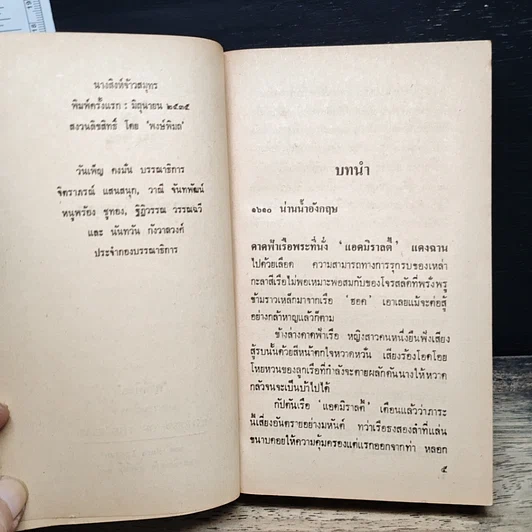 นางสิงห์จ้าวสมุทร
พิมพ์ครั้งแรก : มิถุนายน ๒๕๓๕
สงวนลิขสิทธิ์ โดย 'พงษ์พิมล'
วันเพ็ญ คงมั่น บรรณาธิการ
จิตราภรณ์ แสนสนุก, วาณี จันทพัฒน์
หนูพร้อง ชูทอง, ฐิฏิวรรณ วรรณฉวี
และ นันทวัน กังวาลวงค์
ประจำกองบรรณาธิการ
บทนำ
๑๖๑๐ น่านน้ำอังกฤษ
ดาดฟ้าเรือพระที่นั่ง 'แอดมิราลตี้' แดงฉาน
ไปด้วยเลือด ความสามารถทางการรุกรบของเหล่า
กะลาสีเรือไม่พอเหมาะพอสมกับของโจรสลัดที่พรั่งพรู
ข้ามราวเหล็กมาจากเรือ 'ฮอค' เอาเลยแม้จะต่อสู้
อย่างกล้าหาญแล้วก็ตาม
ข้างล่างดาดฟ้าเรือ หญิงสาวคนหนึ่งยืนฟังเสียง
สู้รบนั้นด้วยสีหน้าตกใจหวาดหวั่น เสียงร้องโอดโอย
โหยหวนของลูกเรือที่กำลังจะตายผลักดันนางให้หวาด
กลัวจนจะเป็นบ้าไปได้
กัปตันเรือ 'แอดมิราลตี้' เตือนแล้วว่าภาระ
นี้เสี่ยงอันตรายอย่างมหันต์ ทว่าเรือธงสองลำที่แล่น
ขนาบคอยให้ความคุ้มครองแต่แรกออกจากท่า หลอก
๕